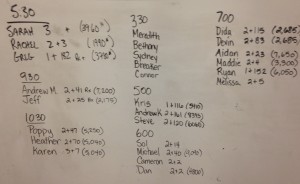 5:30
SARAH 3 + (3960*)
RACHEL 2+3 (1980*)
GREG 1+
930
Andrew M. 2+91 (7,200)
Jeff 2+25 (2,175)
1030
Poppy 2+47 (5,250)
Heather 2+70 (5,040)
Karen 5+7 (5,040)
330
Meredith
Bethany
Sydney
Breaker
Connor
500
Kris 1+116 (5940)
Andrew K 2+161 (9395)
Steve 2+120 (6040)
600
Sol 2+19
Michael 2+40 (4,040)
Cameron 2+2
Dan 2+2 (4800)
700
Didy 2+115 (2,685)
Devin 2+83 (2,685)
Aidan 2+23 (7,650)
Maddie 2+4 (3,300)
Ryan 1+152 (6,050)
Melissa 2+5